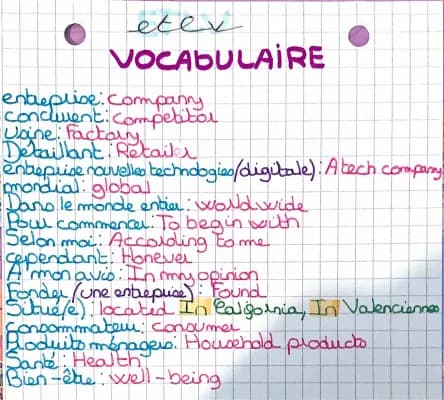 etlv
VOCABULAIRE
entreprise: company
concurrent: competitor
usine: Factory
Détaillant: Retailer
entreprise nouvelles technologies/(digitale): A tech company
mondial: global
Dans le monde entier: worldwide
Pour commencer: To begin with
Selon moi: According to me
cependant: Honever
A mon avis: In my opinion
Fonder (une entreprise): Found
Situé(e): located In California, In Valenciennes
consommateur: consumer
Produits ménagers: Household products
Santé: Health
Bien-être: well-being